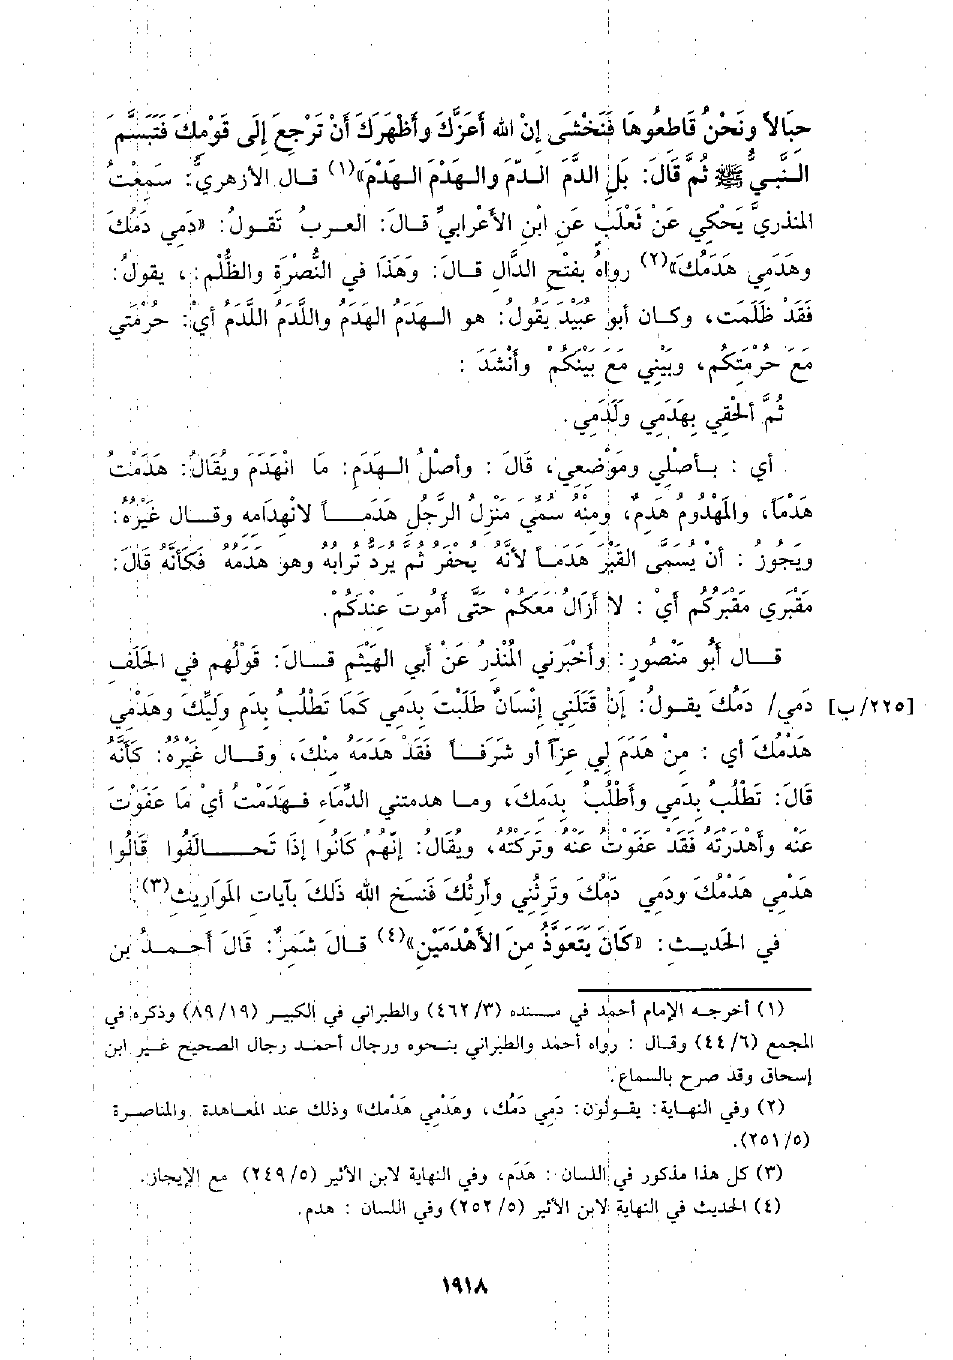 حِبَالاً ونَحْنُ قَاطِعُوهَا فَنَخْشَى إِنْ الله أَعَزَّكَ وأَظْهَرَكَ أَنْ تَرْجِعَ إِلَى قَوْمِكَ فَتَبَسَّمَ
النَّبيُّ ﷺ ثُمَّ قَالَ: بَلِ الدَّمَ الدّمَ والهَدْمَ الهَدْمَ»(١) قال الأزهريُّ: سَمِعْتُ
المنذريَّ يَحْكِي عَنْ ثَعْلَبٍ عَن ابنِ الأَعْرابيِّ قالَ: العربُ تَقولُ: «دَمِي دَمُكَ
وهَدَمِي هَدَمُكَ»(٢) رواهُ بفَتْحِ الدَّالِ قالَ: وَهَذَا في النُّصْرَةِ والظُّلْمِ:، يقولُ:
فَقَدْ ظَلَمَت، وكان أبو عُبَيْدَ يَقُولُ: هو الهَدَمُ الهدَمُ واللَّدَمُ اللَّدَمُ أيْ: حرْمَتي
مَعَ حُرْمَتِكُم، وبَيْنِي مَعَ بَيْنَكُمْ وأَنْشَدَ :
ثُمَّ ألحَقِي بِهَدَمِي ولَدَمِي.
أي : بأصْلِي ومَوْضِعِي، قَالَ : وأصْلُ الهَدَمِ: مَا انْهَدَمَ ويُقَالُ: هَدَمْتُ
هَدْمَاً، والمَهْدُومُ هَدَمٌ، ومِنْهُ سُمِّيَ مَنْزِلُ الرَّجُلِ هَدَمَاً لانْهِدَامه وقال غَيْرُهُ:
ويَجوزُ : أنْ يُسَمَّى القَبْرَ هَدَمَاً لأنَّهُ يحْفرُ ثُمَّ يُردُّ تُرابُه وهو هَدَمُه فَكَأنَّهُ قَالَ:
مَقْبَري مَقْبَرُكم أيْ : لا أَزَالُ مَعَكُمْ حَتَّى أَمُوتَ عِنْدَكُمْ.
قال أَبُو مَنْصُورٍ: وأخبَرني المُنْذِرُ عَنْ أبي الهَيْثَمِ قالَ: قَوْلُهم في الحَلْفِ
[٢٢٥/ب] دَمي/ دَمُكَ يقولُ: إنْ قَتَلَني إنْسَانٌ طَلَبْتَ بِدَمِي كَمَا تَطْلُبُ بِدَمِ وَلِيِّكَ وهَدْمي
هَدْمُكَ أي : مِنْ هَدَمَ لِي عِزاً أو شَرَفَاً فَقَدْ هَدَمَهُ مِنْكَ، وقال غَيْرُهُ: كَأنَّهُ
قَالَ: تَطْلُبُ بِدَمِي وأَطْلُبُ بِدَمِكَ، وما هدمتني الدِّمَاءِ فهَدَمْتُ أيْ مَا عَفَوْتَ
عَنْه وأَهْدَرتَهُ فَقَدْ عَفَوْتُ عَنْهُ وتَرَكْتُه، ويقالُ: إنَّهُمْ كَانُوا إذَا تَحالَفُوا قَالُوا
هَدْمِي هَدْمُكَ ودَمِي دَمُكَ وتَرِثُني وأَرثُكَ فَنَسَخَ الله ذَلكَ بآيَاتِ المَوَاريثِ(٣).
في الحَديثِ: «كَانَ يَتَعَوَّذُ مِنَ الأَهْدَمَيْنِ»(٤) قالَ شَمِرٌ: قَالَ أَحمدُ بن
(١) أخرجه الإمام أحمد في مسنده (٤٦٢/٣) والطبراني في الكبير (٨٩/١٩) وذكره في
المجمع (٤٤/٦) وقال : رواه أحمد والطبراني بنحوه ورجال أحمد رجال الصحيح غير ابن
إسحاق وقد صرح بالسماع.
(٢) وفي النهاية: يقولون: دَمِي دَمُك، وهَدْمِي هَدْمك» وذلك عند المعاهدة والمناصرة
(٢٥١/٥).
(٣) كل هذا مذكور في اللسان : هَدَم، وفي النهاية لابن الأثير (٢٤٩/٥) مع الإيجاز.
(٤) الحديث في النهاية لابن الأثير (٢٥٢/٥) وفي اللسان : هدم.
١٩١٨